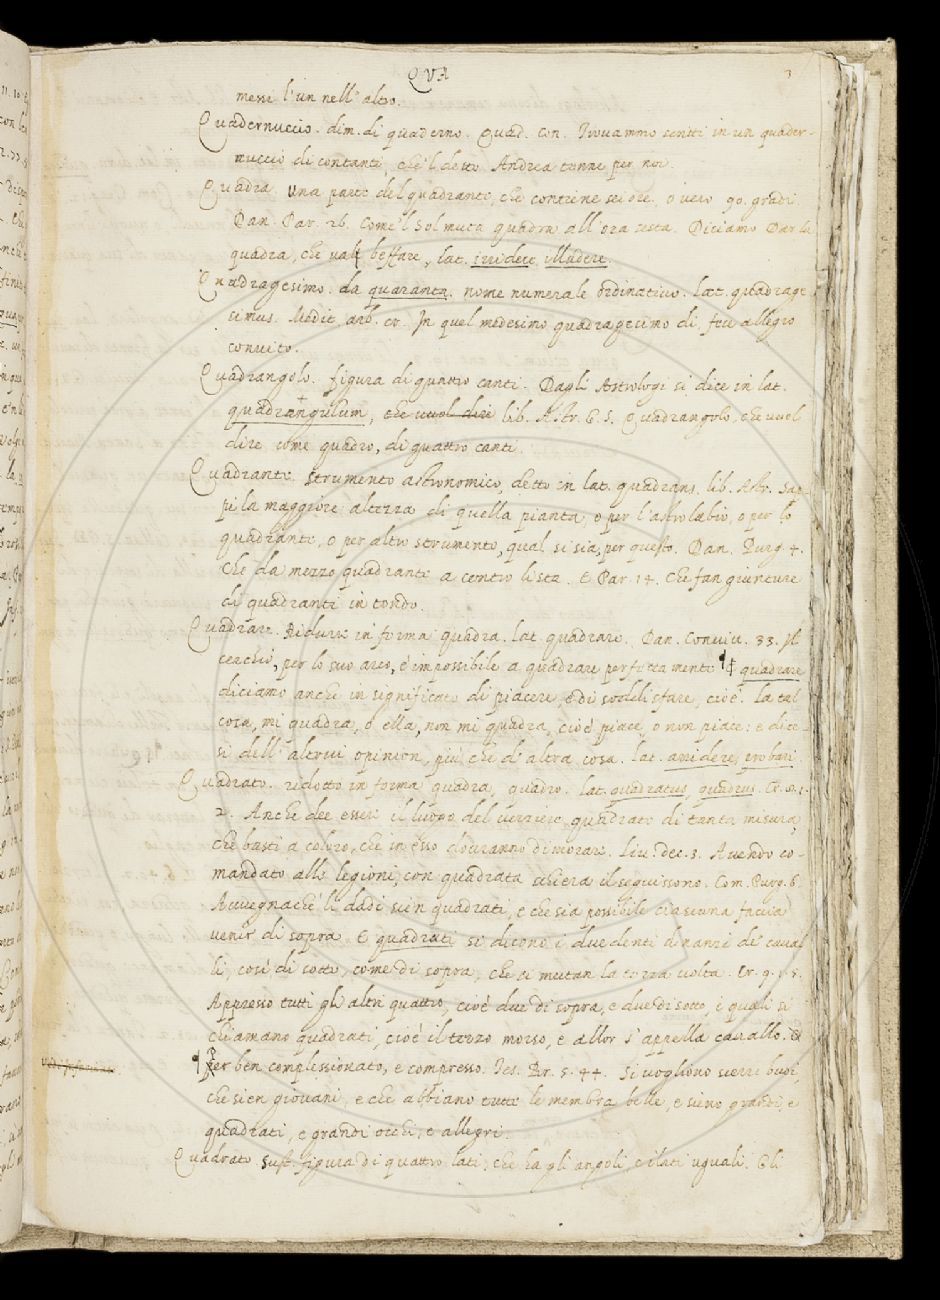 QVA
3
messi l'un nell'altro.
Quadernuccio. dim. di quaderno. Quad. Con. Trouammo scritti in un quader-
nuccio di contanti, che'l detto Andrea tenne per noi.
Quadra. Una parte del quadrante, che contiene sei ore, o uero 90. gradi.
Dan. Par. 26. Come'l Sol muta quadra all'ora sesta. Diciamo Dar la
quadra, che uale beffare, lat. irridere, illudere.
Quadragesimo. da quaranta. nome numerale ordinatiuo. lat. quadrage
simus. Medit. arb. cr. In quel medesimo quadragesimo dì, fece allegro
conuito.
Quadrangolo. figura di quattro canti. Dagli Astrologi si dice in lat.
quadrangulum, che uuol dire lib. Astr. E. S. Quadrangolo, che uuol
dire come quadro, di quattro canti.
Quadrante. Strumento astronomico, detto in lat. quadrans. lib. Astr. Sap-
pi la maggiore altezza di quella pianta, o per l'astrolabio, o per lo
quadrante, o per altro strumento, qual si sia, per questo. Dan. Purg. 4.
Che da mezzo quadrante a centro lista. E Par. 14. Che fan giunture
di quadranti in tondo.
Quadrare. Ridurre in forma quadra. lat. quadrare. Dan. Conuiu. 33. Il
cerchio, per lo suo arco, è impossibile a quadrare perfettamente ¶ quadrare
diciamo anche in significato di piacere, e di soddisfare, cioè. La tal
cosa, mi quadra, o ella, non mi quadra, cioè piace, o non piace: e dice-
si dell'altrui opinion, più, che d'altra cosa. lat. arridere, probari.
Quadrato. ridotto in forma quadra, quadro. lat. quadratus, quadrus. Cr. 9. 1.
2. Anche dee essere il luogo del uerziere, quadrato di tanta misura,
che basti a coloro, che in esso douranno dimorare. Liu. dec. 3. Auendo co-
mandato alle legioni, con quadrata schiera il seguissono. Com. Purg. 6.
Auuegnachè li dadi sien quadrati, e che sia possibile ciascuna faccia
venir di sopra. E quadrati si dicono i due denti dinanzi de' caual
li, così di sotto, come di sopra, che si mutan la terza uolta. Cr. 9. 1. 5.
Appresso tutti gli altri quattro, cioè due di sopra, e due di sotto, i quali si
chiamano quadrati, cioè il terzo morso, e allor s'appella cauallo. E
¶ Per ben complessionato, e compresso. Tes. Br. 5. 44. Si uogliono uerre buoi,
che sien giouani, e che abbiano tutte le membra belle, e sieno grandi, e
quadrati, e grandi occhi, e allegri.
Quadrato Sust. figura di quattro lati, che ha gli angoli, e i lati uguali. Gli